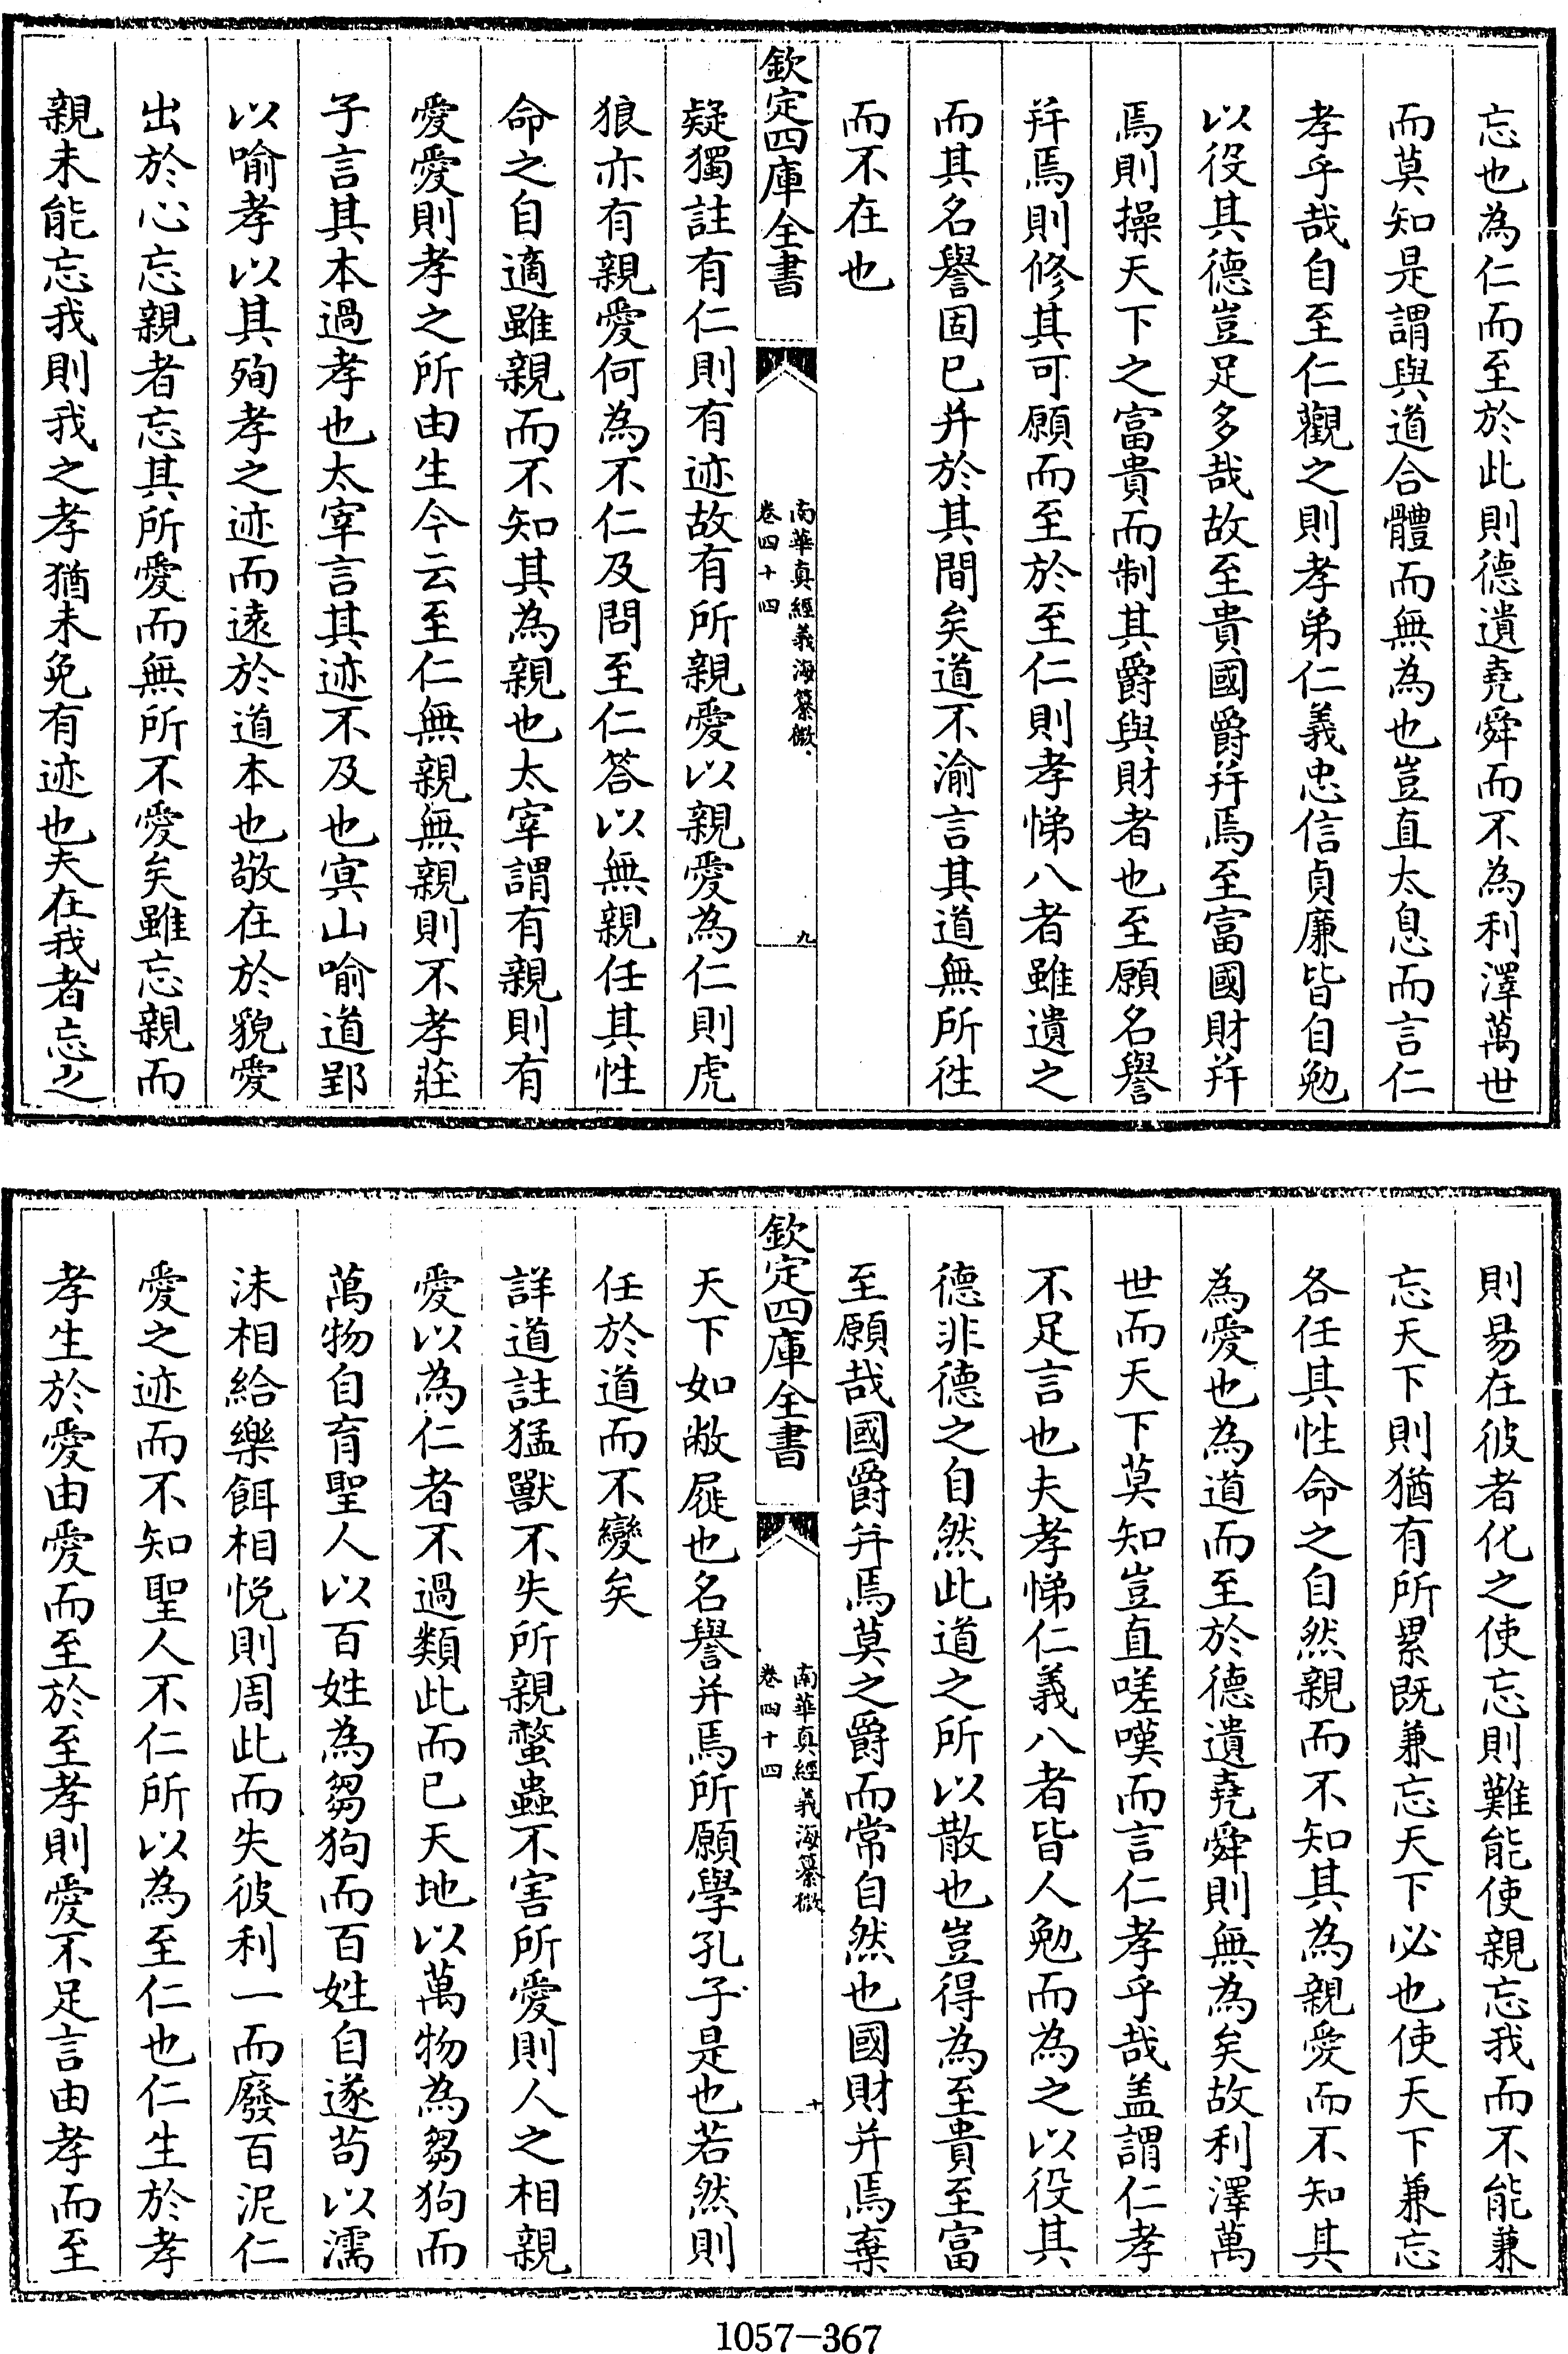 忘也為仁而至於此則德遺堯舜而不為利澤萬世
而莫知是謂與道合體而無為也豈直太息而言仁
孝乎哉自至仁觀之則孝弟仁義忠信貞廉皆自勉
以役其德豈足多哉故至貴國爵并焉至富國財并
焉則操天下之富貴而制其爵與財者也至願名譽
并焉則修其可願而至於至仁則孝悌八者雖遺之
而其名譽固已并於其間矣道不渝言其道無所徃
而不在也
欽定四庫全書
南華真經義海纂微
卷四十四
九
疑獨註有仁則有迹故有所親愛以親愛為仁則虎
狼亦有親愛何為不仁及問至仁答以無親任其性
命之自適雖親而不知其為親也太宰謂有親則有
愛愛則孝之所由生今云至仁無親無親則不孝莊
子言其本過孝也太宰言其迹不及也冥山喻道郢
以喻孝以其殉孝之迹而遠於道本也敬在於貌愛
出於心忘親者忘其所愛而無所不愛矣雖忘親而
親未能忘我則我之孝猶未免有迹也夫在我者忘之
則易在彼者化之使忘則難能使親忘我而不能兼
忘天下則猶有所累既兼忘天下必也使天下兼忘
各任其性命之自然親而不知其為親愛而不知其
為愛也為道而至於德遺堯舜則無為矣故利澤萬
世而天下莫知豈直嗟嘆而言仁孝乎哉盖謂仁孝
不足言也夫孝悌仁義八者皆人勉而為之以役其
德非德之自然此道之所以散也豈得為至貴至富
至願哉國爵并焉莫之爵而常自然也國財并焉棄
欽定四庫全書
南華真經義海纂微
卷四十四
十
天下如敝屣也名譽并焉所願學孔子是也若然則
任於道而不變矣
詳道註猛獸不失所親螫蟲不害所愛則人之相親
愛以為仁者不過類此而已天地以萬物為芻狗而
萬物自育聖人以百姓為芻狗而百姓自遂苟以濡
沫相給樂餌相悅則周此而失彼利一而廢百泥仁
愛之迹而不知聖人不仁所以為至仁也仁生於孝
孝生於愛由愛而至於至孝則愛不足言由孝而至
1057-367